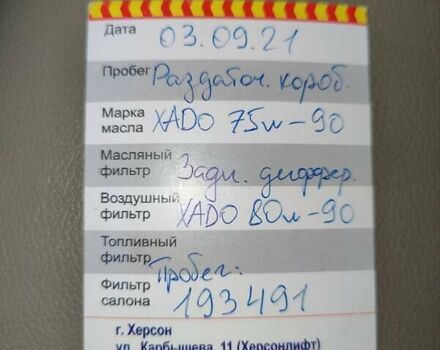 Дата 03.09.21
Пробег Раздаточ. короб.
Марка масла XADO 75w-90
Масляный фильтр Задн. диффер.
Воздушный фильтр XADO 80w-90
Топливный фильтр
Пробег:
Фильтр салона 193491
г. Херсон
ул. Карбышева, 11 (Херсонлифт)